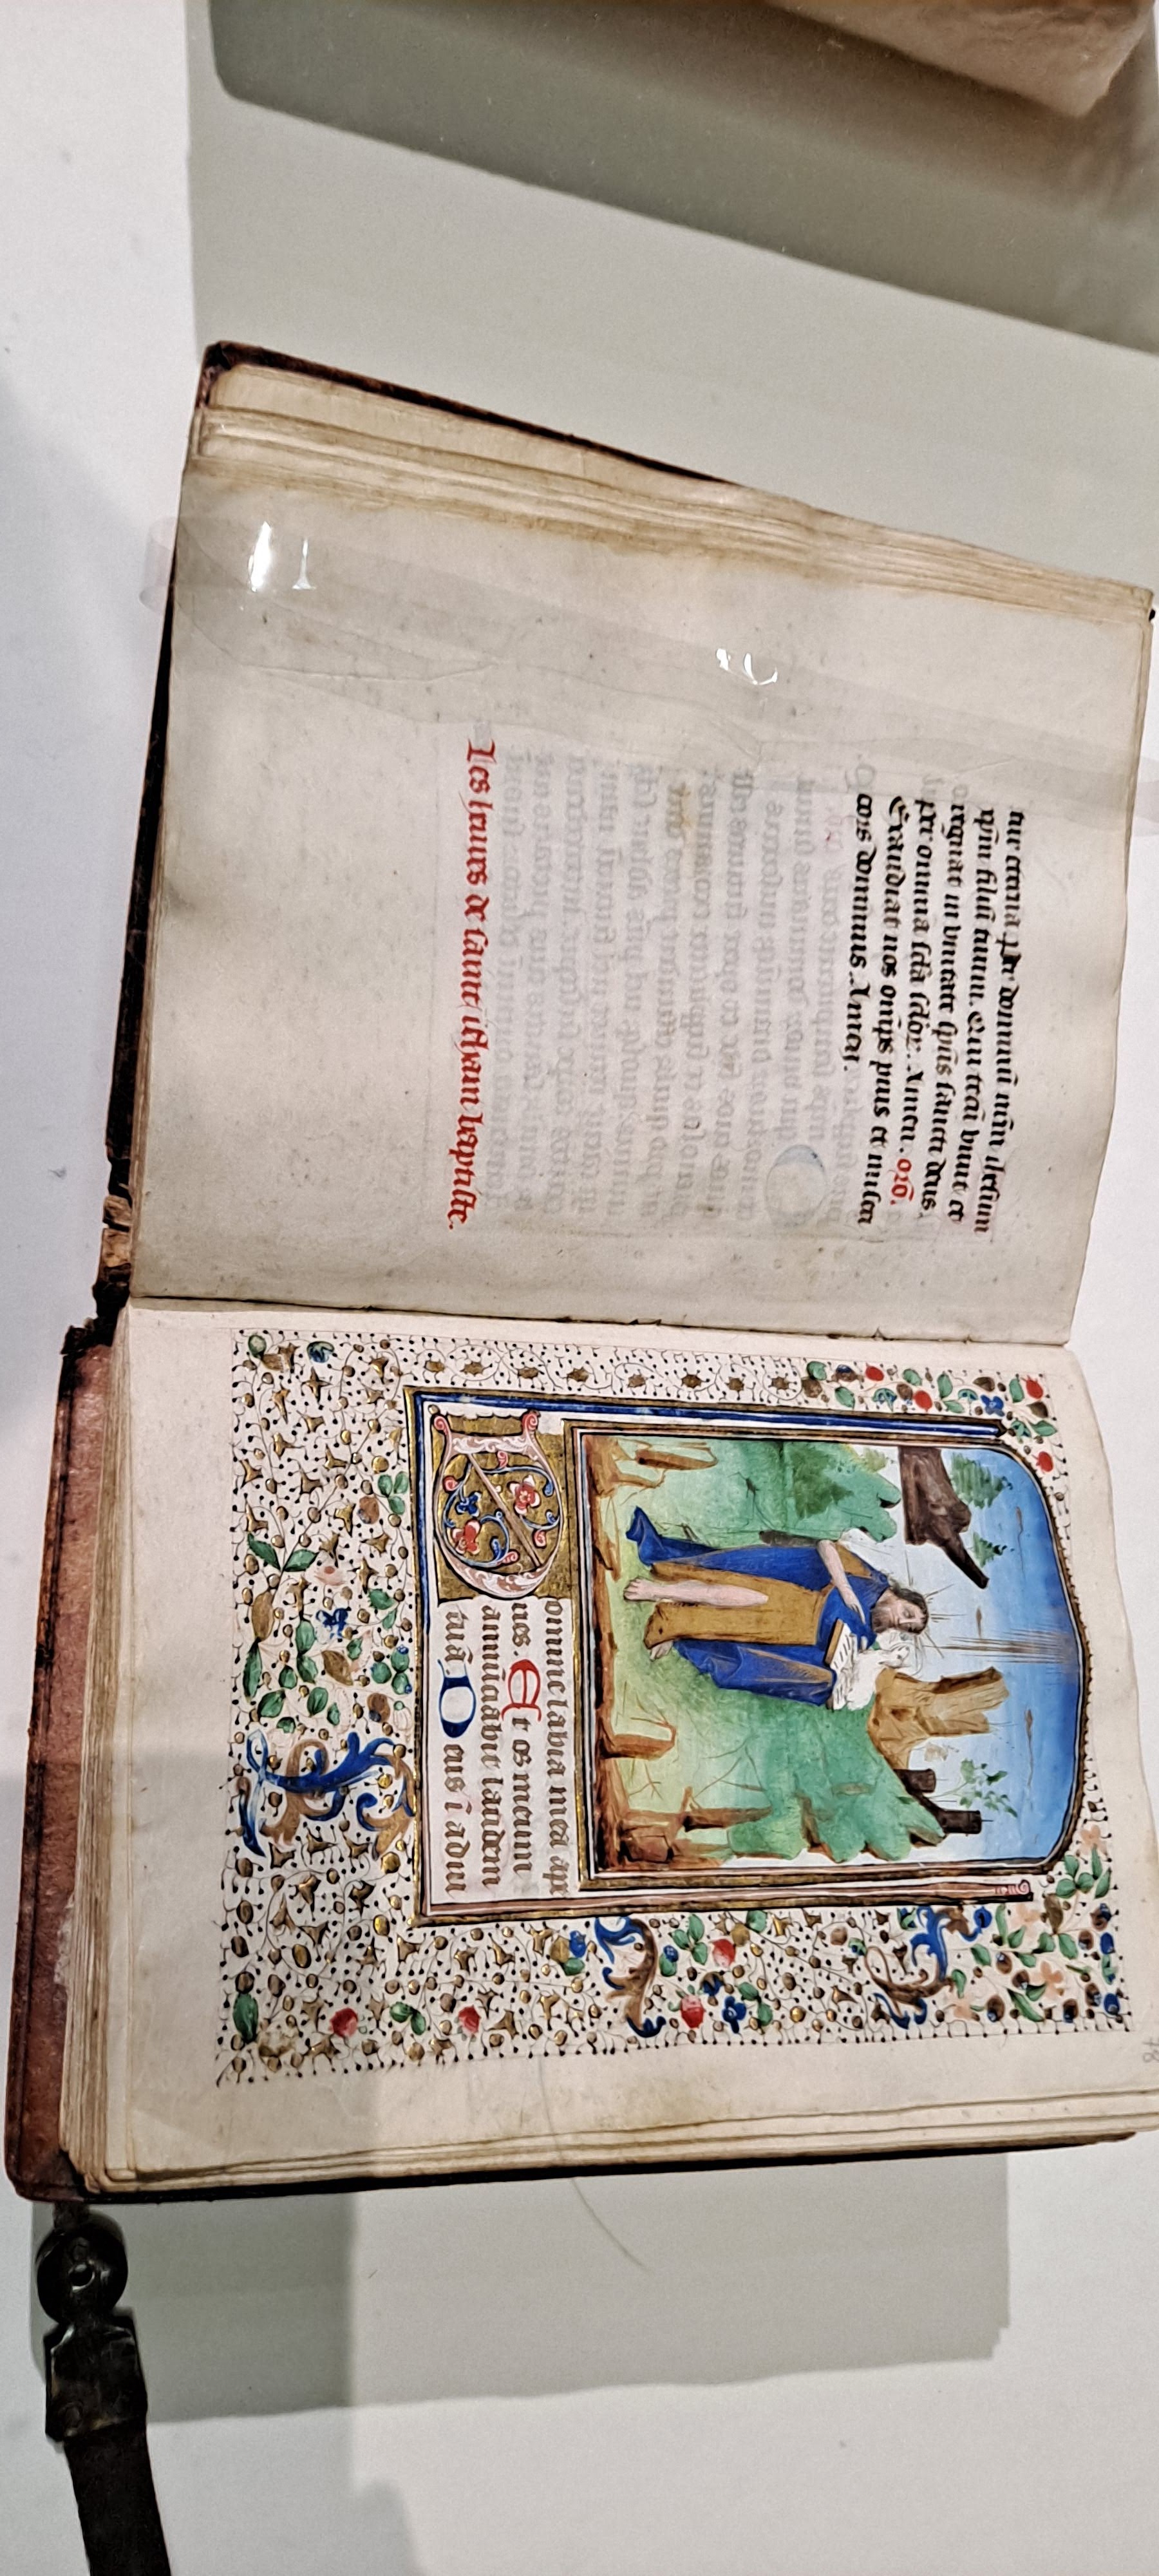 dominū nr̄m ihesum
xp̄m filiū tuum. Qui tecū viuit et
regnat in vnitate sp̄us sancti deus
per omnia sc̄la sc̄loꝝ. Amen. or̄o.
Exaudiat nos om̄ips pius et miseri
cors dominus. Amen.
Les heures de saint iehan baptiste.
Domine labia mea ape
ries. Et os meum
annūciabit laudem
tuā Deus ī adiu